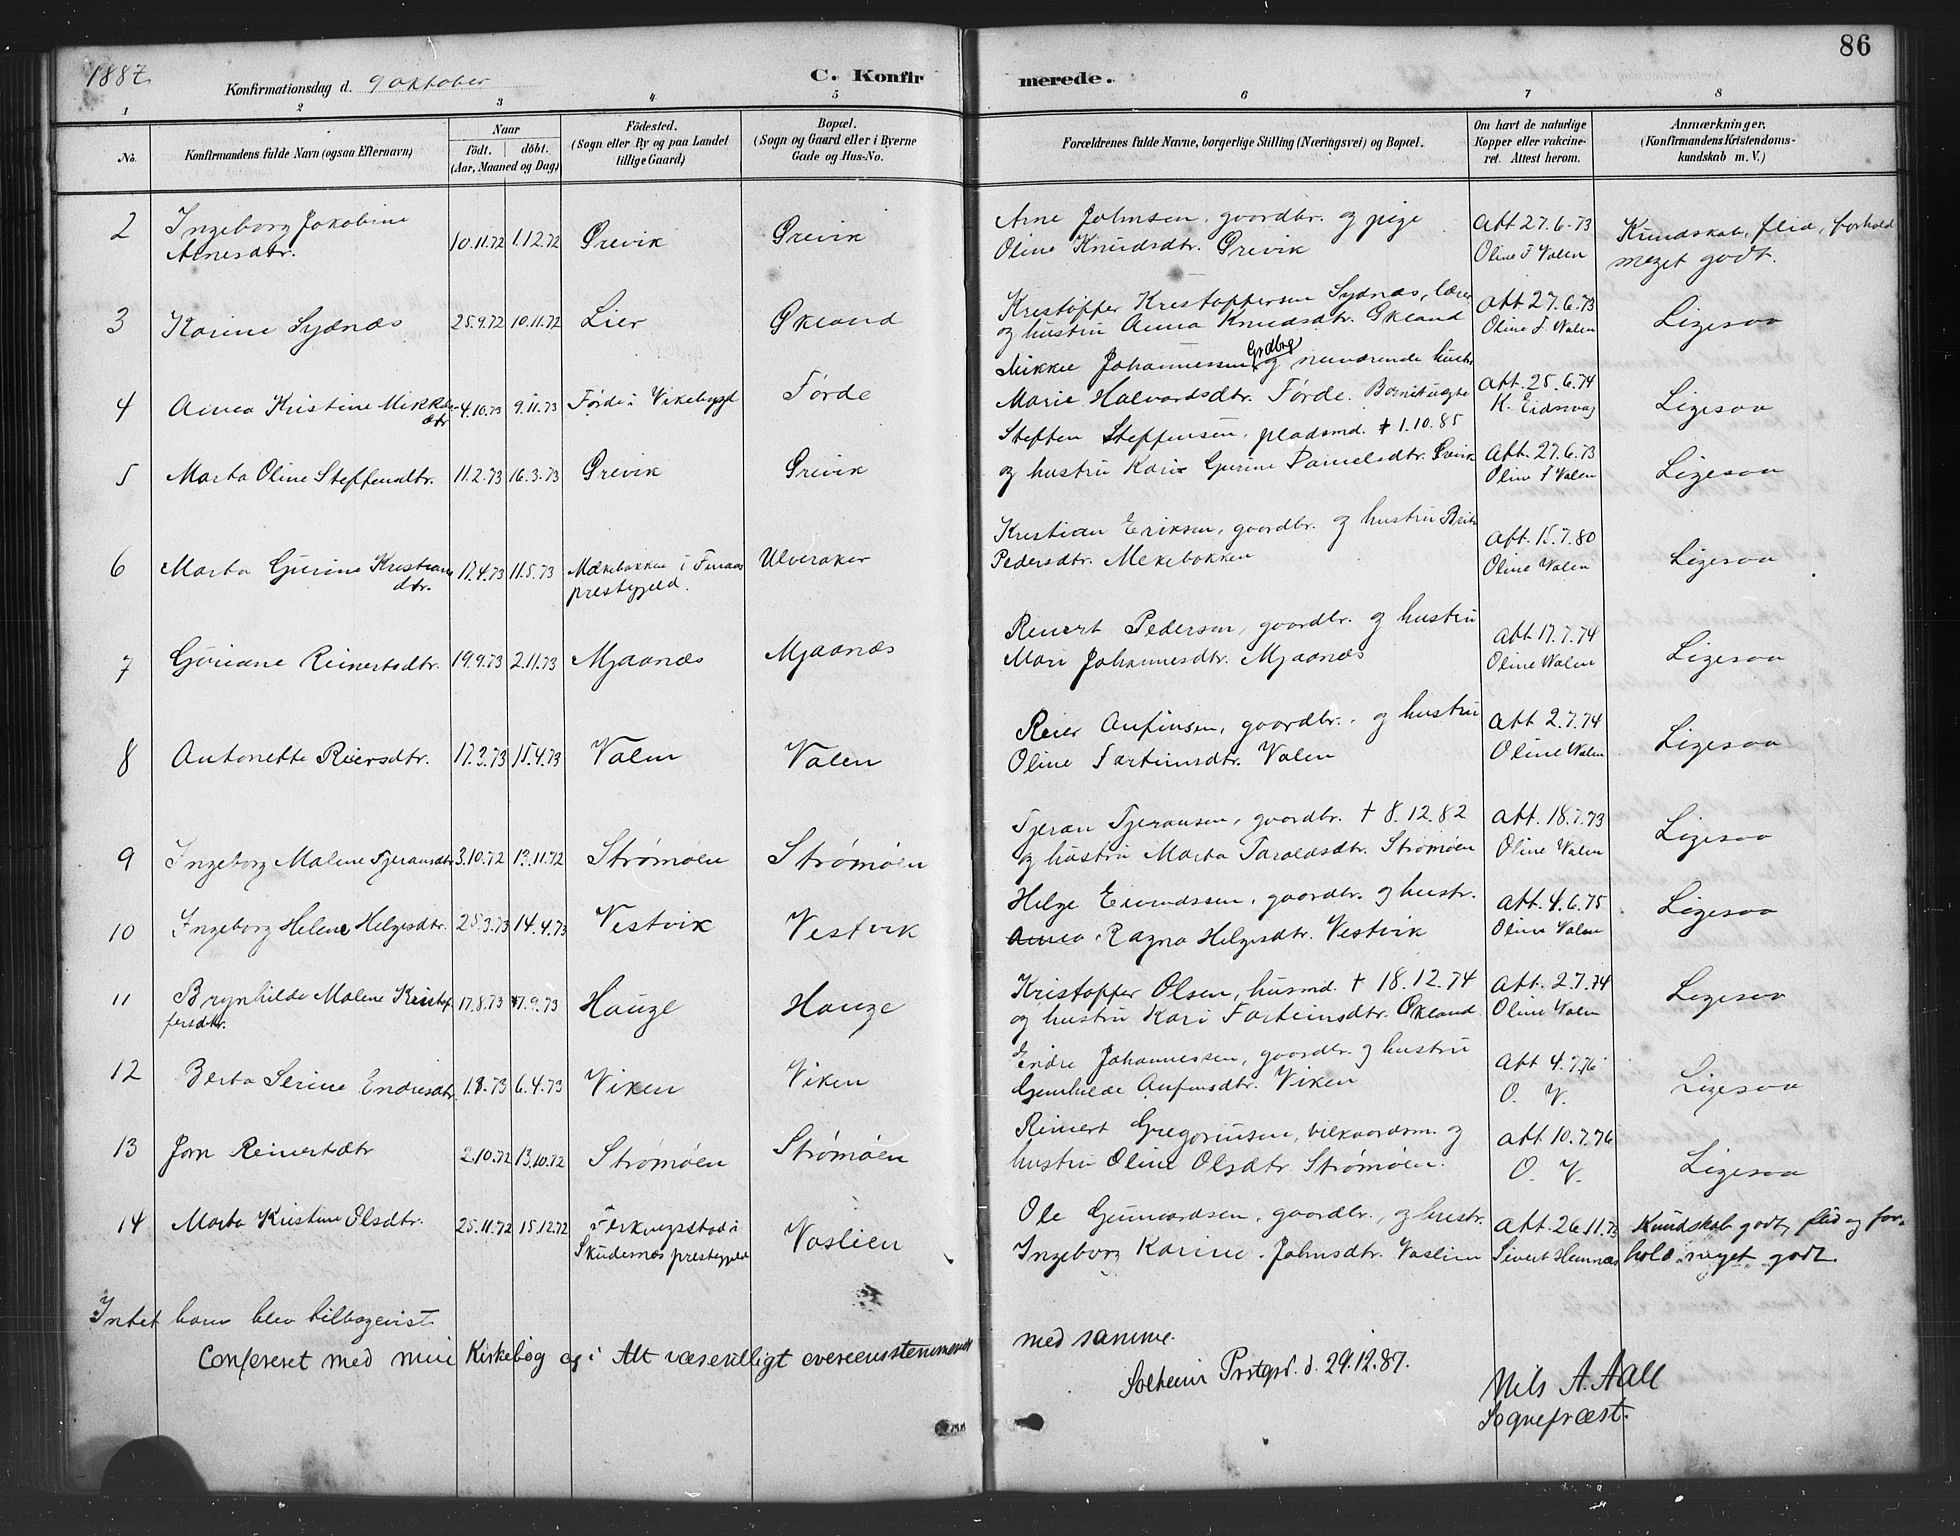 86
1887.
Konfirmationsdag d. 9 oktober
C. Konfirmerede.
1 2 3 4 5 6 7 8
No.
Konfirmandens fulde Navn (ogsaa Efternavn)
Naar
födt. döbt.
(Aar, Maaned og Dag)
Födested.
(Sogn eller By og paa Landet
tillige Gaard)
Bopæl.
(Sogn og Gaard eller i Byerne
Gade og Hus-No.
Forældrenes fulde Navne, borgerlige Stilling (Næringsvei) og Bopæl.
Om havt de naturlige
Kopper eller vakcine-
ret. Attest herom.
Anmærkninger.
(Konfirmandens Kristendoms-
kundskab m. V.)
2 Ingeborg Jakobine
Arnesdtr. 10.11.72 1.12.72 Grevik Grevik
Arne Johnsen, gaardbr. og pige
Oline Knudsdtr. Grevik
Att 27.6.73
Oline T Valen
Kundskab, flid, forhold
meget godt.
3 Karine Sydnæs 25.9.72 10.11.72 Lier Økland
Kristoffer Kristoffersen Sydnæs, lærer
og hustru Anna Knudsdtr. Økland
Att 27.6.73
Oline T. Valen
Ligesaa
4 Anna Kristine Mikkels-
dtr 4.10.73 9.11.73 Førde i Vikebygd Førde
Mikkel Johannessen Grdbrg og nuværende hustr.
Marie Halvordsdtr. Førde.
Att. 25.6.74
K. Eidsvag
Ligesaa
5 Marta Oline Steffensdtr. 11.2.73 16.3.73 Grevik Grevik
Steffen Steffensen, pladsmd. † 1.10.85
og hustru Kari Gurine Danielsdtr. Grevik
Att. 27.6.73
Oline T Valen
Ligesaa
6 Marta Gurine Kristians
dtr. 17.4.73 11.5.73 Mækebakken i Finaas
prestegjeld. Ulveraker
Kristian Eriksen, gaardbr. og hustru Brita
Pedersdtr. Mekebakken
Att. 15.7.80
Oline Valen
Ligesaa
7 Guriane Reinertsdtr. 19.9.73 2.11.73 Mjaanæs Mjaanæs
Reinert Pedersen, gaardbr. og hustru
Mari Johannesdtr. Mjaanæs
Att. 17.7.74
Oline Valen
Ligesaa
8 Antonette Reiersdtr. 17.3.73 15.4.73 Valen Valen
Reier Anfinsen, gaardbr. og hustru
Oline Torteinsdtr. Valen
Att 2.7.74
Oline Valen
Ligesaa
9 Ingeborg Malene Tjeransdtr 3.10.72 13.11.72 Strømøen Strømøen
Tjeran Tjeransen, gaardbr. † 8.12.82
og hustru Marta Taraldsdtr. Strømøen
Att. 18.7.73
Oline Valen
Ligesaa
10 Ingeborg Helene Helgesdtr. 25.3.73 14.4.73 Vestvik Vestvik
Helge Eivindssen, gaardbr. og hustr.
Anna Ragna Helgesdtr. Vestvik
Att. 4.6.75
Oline Valen
Ligesaa
11 Brynhilde Malene Kristof
fersdtr. 17.8.73 7.9.73 Hauge Hauge
Kristoffer Olsen, husmd. † 18.12.74
og hustru Kari Torteinsdtr. Økland
Att. 2.7.74
Oline Valen
Ligesaa
12 Berta Serine Endresdtr. 1.8.73 6.4.73 Viken Viken
Endre Johannessen, gaardbr. og hustru
Gunhilde Anfinsdtr. Viken
Att 4.7.76
O. V.
Ligesaa
13 Jorn Reinertsdtr 2.10.72 13.10.72 Strømøen Strømøen
Reinert Gregoriusen, vilkaarsm. og
hustru Oline Olsdtr. Strømøen.
Att. 10.7.76
O. V.
Ligesaa
14 Marta Kristine Olsdtr. 25.11.72 15.12.72 Ferkingstad i
Skudesnæs prestegjeld Vaslien
Ole Gunnardsen, gaardbr., og hustr.
Ingeborg Karine Johnsdtr. Vaslien
Att. 26.11.73
Sivert Hemnæs
Kundskab godt, flid og for-
hold meget godt.
Intet barn blev tilbagevist.
Confereret med min Kirkebog og i Alt væsentligt overeensstemmende
med samme.
Solheim Prstgrd. d. 29.12.87.
Nils A. Aall
Sognepræst.